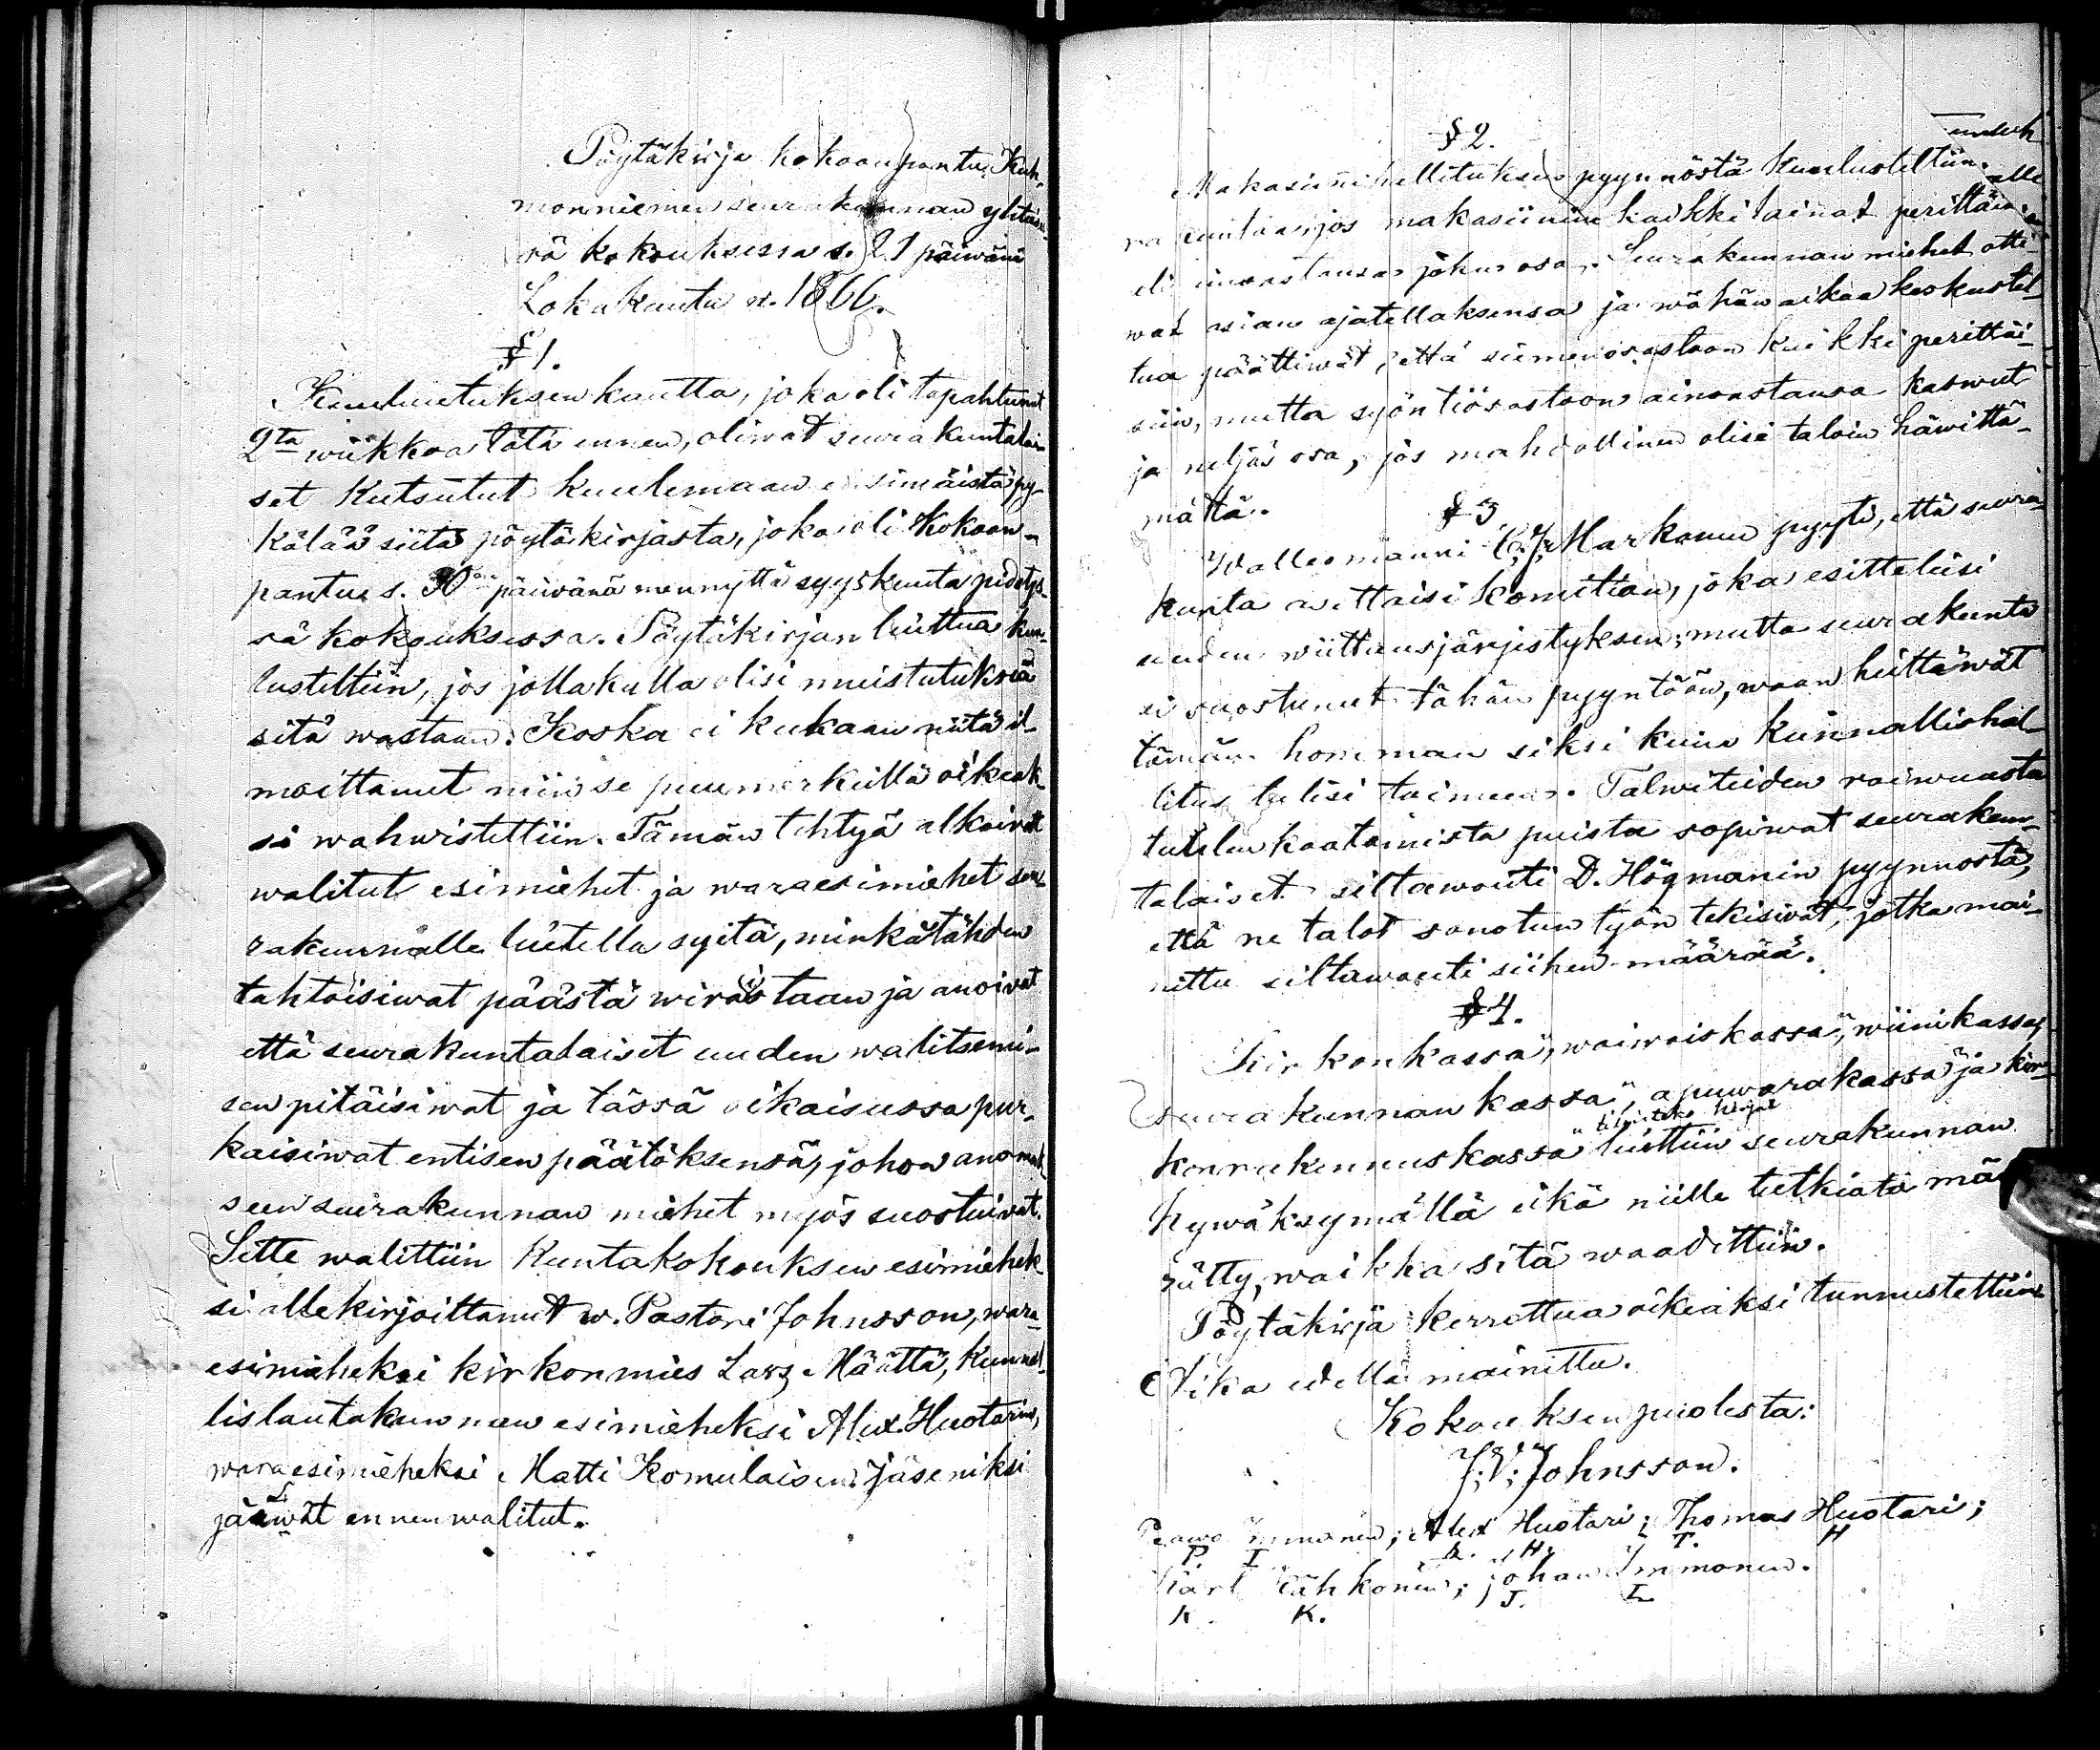 Pöytäkirja kokoonpantu Kuh-
monniemen seurakunnan yhteise-
sä kokouksessa s. 21 päiwänä
Lokakuuta w. 1866.
§ 1.
Kuuluutuksen kautta, joka oli tapahtunut
2ta wiikkoa tätä ennen, oliwat seurakuntalai-
set kutsutut kuulemaan ensimäistä py-
kälää siitä pöytäkirjasta, joka oli kokoon-
pantu s. 30 päiwänä mennyttä syyskuuta pidetys-
sä kokouksessa. Pöytäkirjan luettua kuu-
lusteltiin, jos jollakulla olisi muistutuksia
sitä wastaan. Koska ei kukaan niitä il-
moittanut niin se puumerkillä oikeak-
si wahwistettiin. Tämän tehtyä alkoiwat
walitut esimiehet ja waraesimiehet seu-
rakunnalle luetella syitä, minkätähden
tahtoisiwat päästä wiroistaan ja anoiwat
että seurakuntalaiset uuden walitsemi-
sen pitäisiwät ja tässä oikaisussa pur-
kaisiwat entisen päätöksensä, johon anomuk-
seen seurakunnan miehet myös suostuiwat.
Sitte walittiin Kuntakokouksen esimiehek-
si allekirjoittanut w. Pastori Johnsson, wara-
esimieheksi kirkonmies Lars Määttä, Kunnal-
lislautakunnan esimieheksi Alex. Huotarin,
waraesimieheksi Matti Komulaisen. Jäseniksi
jäiwät ennen walitut.
§ 2.
Makasiinihallituksen pyynnöstä kuulusteltiin
jos makasiiniin kaikki lainat perittäisi
eli ainoastansa joku osa. Seurakunnan miehet otti-
wat asian ajatellaksensa ja wähän aikaa keskustel-
tua päättiwät, että siemenosastoon kaikki perittäi-
siin, mutta syöntiosastoon ainoastansa kaswut
ja neljäs osa, jos mahdollinen olisi taloin häwittä-
mättä.
§ 3
Wallesmanni C. J. Markanen pyyti, että seura-
kunta asettaisi komitean, joka esitteleisi
uuden wiittausjärjestyksen; mutta seurakunta
ei suostunut tähän pyyntöön, waan heittäwät
tämän homman siksi kuin kunnallishal-
litus tulisi toimeen. Talwiteiden raiwuusta
tuulen kaatamista puista sopiwat seurakun-
talaiset siltawouti D. Högmanin pyynnöstä,
että ne talot sanotun työn tekisiwät, jotka mai-
nittu siltawouti siihen määrää.
§ 4.
Kirkonkassa", waiwaiskassa", wiinikassa",
seurakunnan kassa", apuwarakassa" ja kir-
konrakennuskassa" tilinteko kirjat luettiin seurakunnan
hywäksymällä eikä niille tutkiata mää-
rätty, waikka sitä waadittiin.
Pöytäkirja kerrottua oikeaksi tunnustettiin.
Aika edellä mainittu.
Kokouksen puolesta:
J. V. Johnsson.
Paawo Immonen; Alex Huotari; Thomas Huotari;
P. I. A. H. T. H
Karl Kähkönen; Johan Immonen.
K. K. J. I.